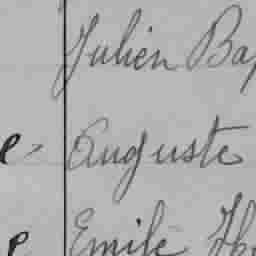 Julien Ba
e Auguste
e Emile Th